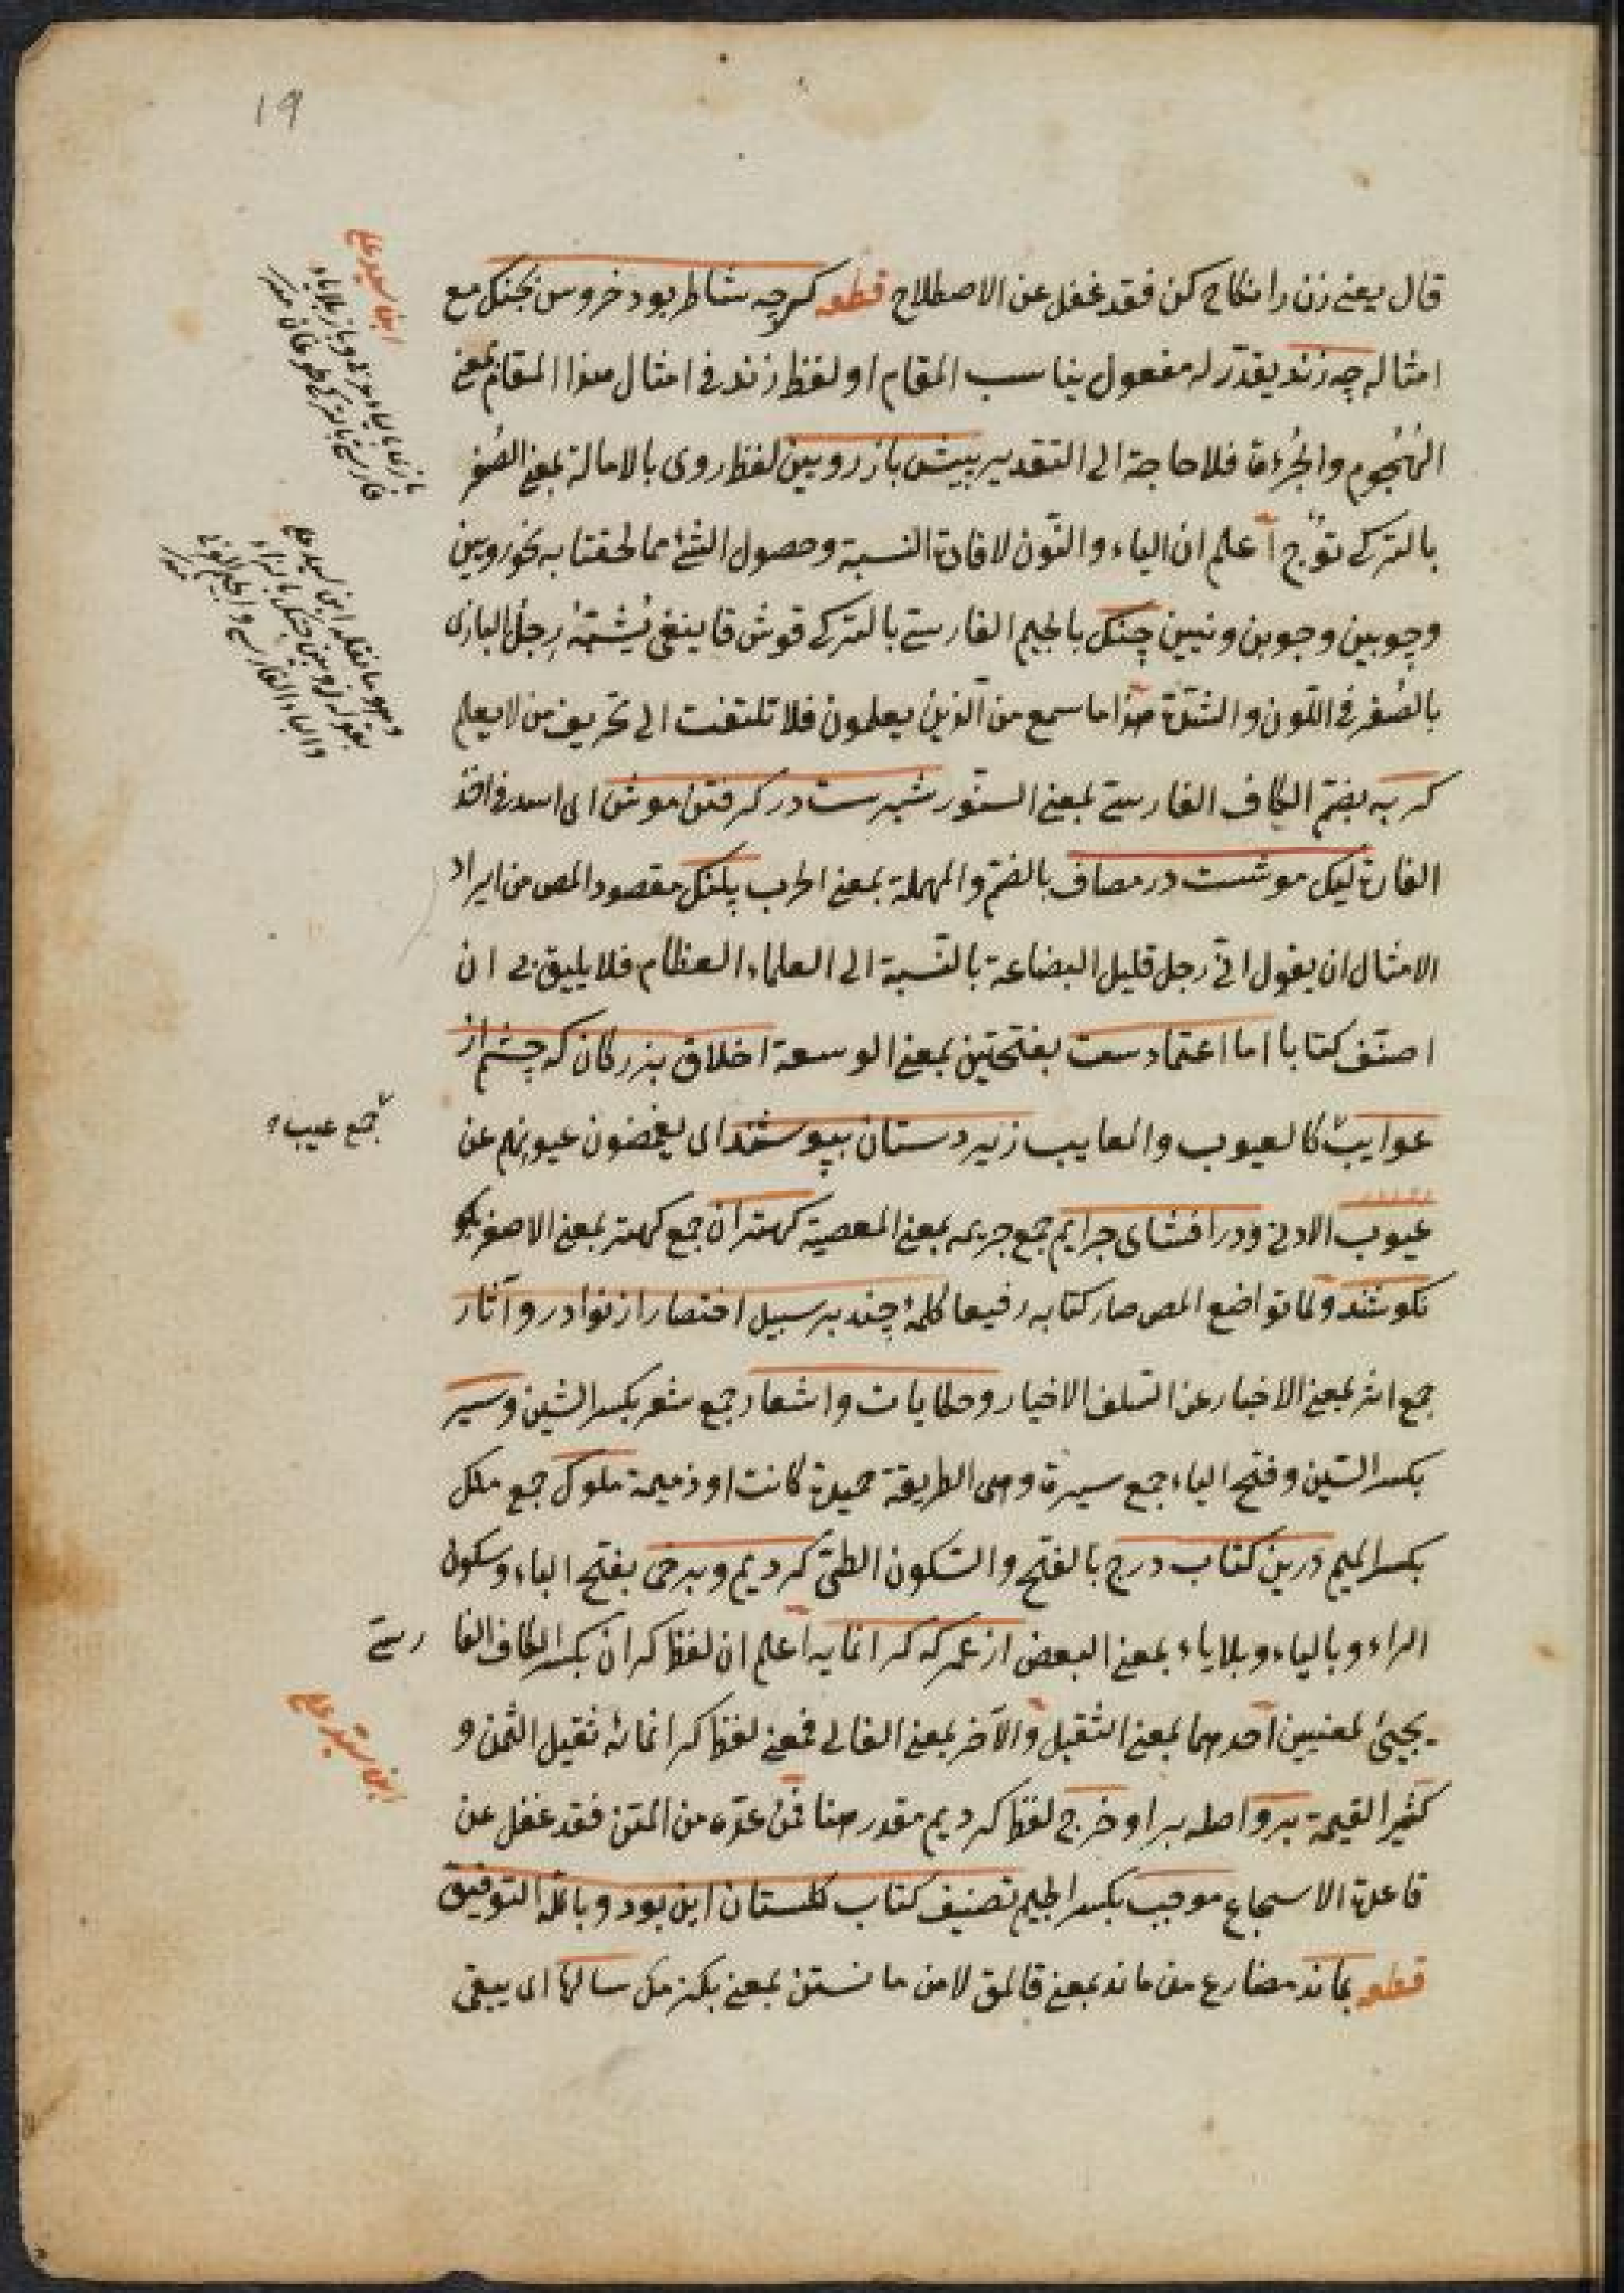 19
قال يعنى زن را نكاح كن فقد غفل عن الاصطلاح قطعه كرچه شاطر بود خروس بجنك مع
امثاله چه زند يقدّر له مفعول يناسب المقام او لفظ زند فى امثال هذا المقام بمعنى
الهُجُوم والجُرءة فلا حاجة الى التقدير بيش باز رويين لفظ روى بالامالة بمعنى الصُفر
بالتركى توُج اعلم ان الياء والنّون لافادة النسبة وحصول الشئ مما لحقتا به نحو رويين
وچوبين وجوين ونيين چنكل بالجيم الفارسى بالتركى قوش قاينغى يُشَبَّهُ رِجلُ البازى
بالصُفر فى اللّون والشدّة هذا ما سمع من الّذين يعلمون فلا تلتفت الى تحريف من لا يعلم
كربه بضمّ الكاف الفارسى بمعنى السنّور شيرست در كرفتن موش اى اسد فى اخذ
الفارة ليك موشست در مصاف بالضمّ والمهملة بمعنى الحرب پلنك مقصود المص من ايراد
الامثال ان يقول انّى رجل قليل البضاعة بالنّسبة الى العلماء العظام فلا يليق بى ان
اصنّف كتابا اما اعتماد سعت بفتحتين بمعنى الوسعة اخلاق بزركان كه چشم از
عوايب كالعيوب والمعايب زيردستان بپوشند اى يغمضون عيونهم عن
جمع عيب
عيوب الادنى ودر افشاى جرايم جمع جريمه بمعنى المعصية كهتران جمع كهتر بمعنى الاصغر
نكوشند ولما تواضع المص صار كتابه رفيعا كلمۀ چند بر سبيل اختصار از نوادر وآثار
جمع اثر بمعنى الاخبار عن السّلف الاخيار وحكايات واشعار جمع شعر بكسر الشين وسير
بكسر السّين وفتح الياء جمع سيرة وهى الطريقة حميدة كانت او ذميمة ملوك جمع ملك
بكسر الميم درين كتاب درج بالفتح والسّكون الطىّ كرديم وبرخى بفتح الباء وسكون
الراء وبالياء وبلا ياء بمعنى البعض از عمر كه كرانمايه اعلم ان لفظ كران بكسر الكاف الفارسى
يجيئ لمعنيين احدهما بمعنى الثقيل والآخر بمعنى الغالى فمعنى لفظ كرانمايه ثقيل الثمن و
كثير القيمة برو اصله بر او خرج لفظ كرديم مقدر هنا فمن عدّه من المتن فقد غفل عن
قاعدة الاسجاع موجب بكسر الجيم تصنيف كتاب كلستان اين بود وبالله التوفيق
قطعه بماند مضارع من ماند بمعنى قالمق لا من مانستن بمعنى بكزمك سالها اى يبقى